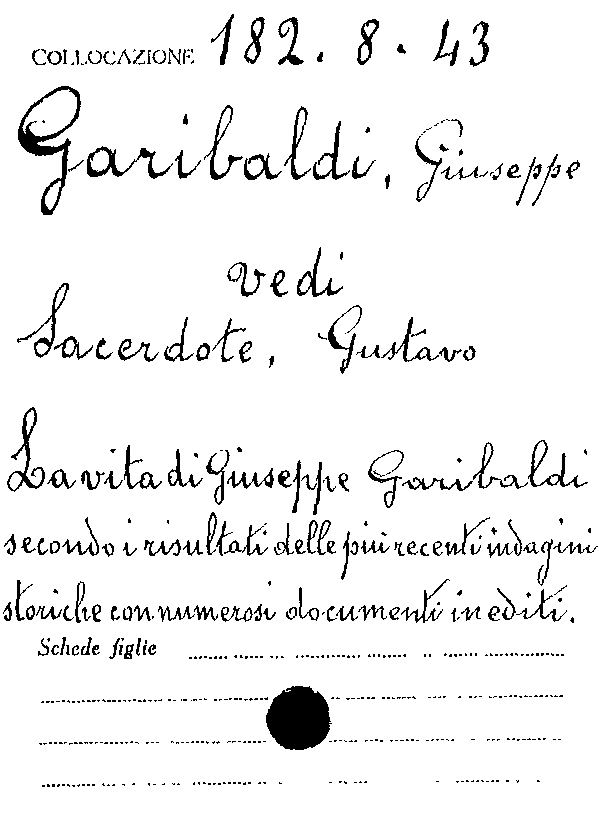 COLLOCAZIONE 182. 8. 43
Garibaldi, Giuseppe
vedi
Sacerdote, Gustavo
La vita di Giuseppe Garibaldi
secondo i risultati delle più recenti indagini
storiche con numerosi documenti inediti.
Schede figlie